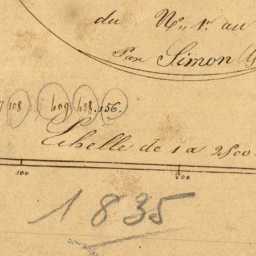 du N.º 1.er au
Par Simon (
108 409 428 156.
Echelle de 1 à 2500
100 200
1835